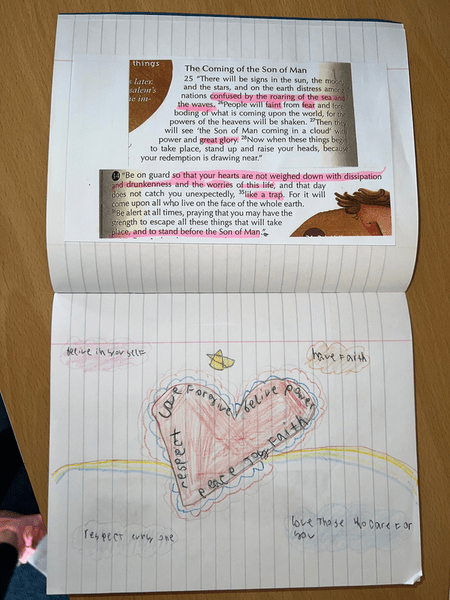 things
later.
im-
The Coming of the Son of Man
25 "There will be signs in the sun, the moon
and the stars, and on the earth distress among
nations confused by the roaring of the sea and
the waves. 26People will faint from fear and fore
boding of what is coming upon the world, for the
powers of the heavens will be shaken. 27Then they
will see 'the Son of Man coming in a cloud' with
power and great glory. 28Now when these things begin
to take place, stand up and raise your heads, because
your redemption is drawing near."
34 "Be on guard so that your hearts are not weighed down with dissipation
and drunkenness and the worries of this life, and that day
does not catch you unexpectedly, 35like a trap. For it will
come upon all who live on the face of the whole earth.
36Be alert at all times, praying that you may have the
strength to escape all these things that will take
place, and to stand before the Son of Man."
belive in yourself
have Faith
Love Forgive belive power
respect peace Joy Faith
respect evry one
Love Those who care For
you